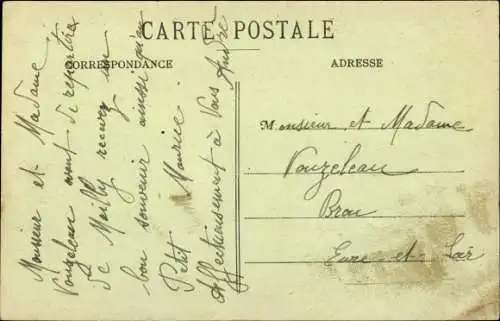 CARTE POSTALE
CORRESPONDANCE
ADRESSE
Monsieur et Madame
Vouzeleau avant de repartire
de Mailly recevez un
bon souvenir ainssi qu'au
Petit Maurice.
Affectueusement à Vous André
Monsieur et Madame
Vouzeleau
Brou
Eure et Loir